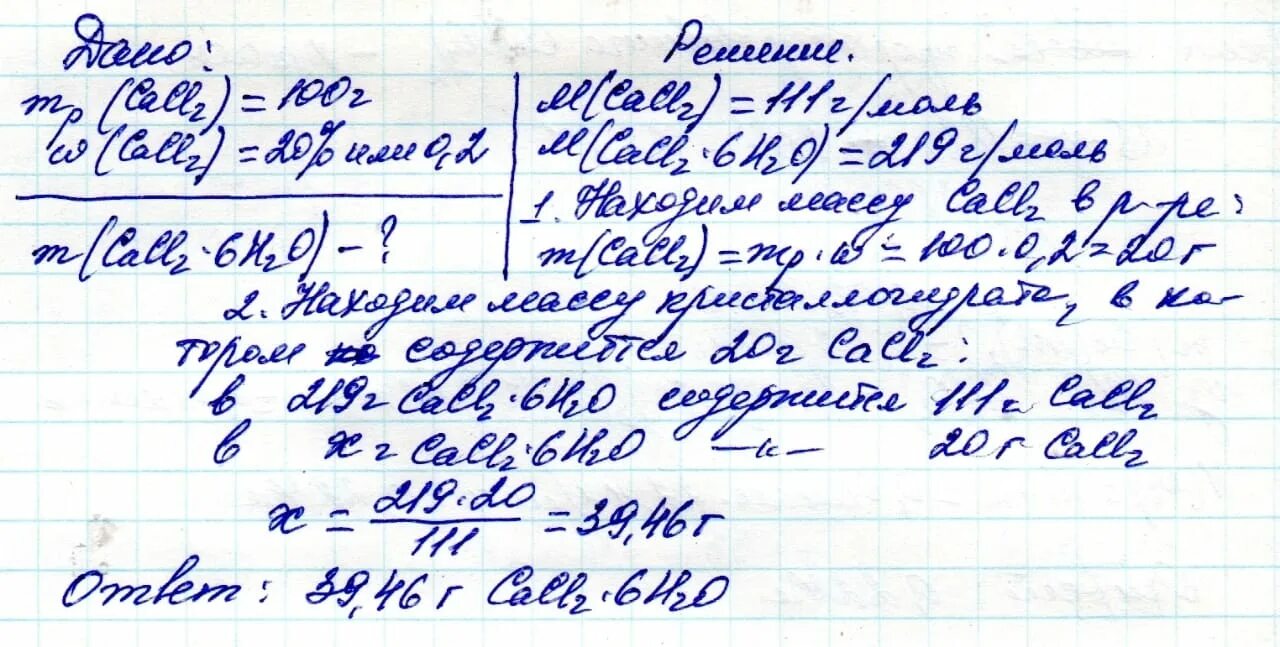 Дано:
mр (CaCl₂) = 100г
ω (CaCl₂) = 20% или 0,2
m (CaCl₂·6H₂O) – ?
Решение.
M(CaCl₂) = 111 г/моль
M(CaCl₂·6H₂O) = 219 г/моль
1. Находим массу CaCl₂ в р-ре:
m(CaCl₂) = mр·ω = 100·0,2 = 20г
2. Находим массу кристаллогидрата, в ко-
тором содержится 20г CaCl₂:
в 219г CaCl₂·6H₂O содержится 111г CaCl₂
в x г CaCl₂·6H₂O —"— 20г CaCl₂
x = 219·20 / 111 = 39,46г
Ответ: 39,46 г CaCl₂·6H₂O